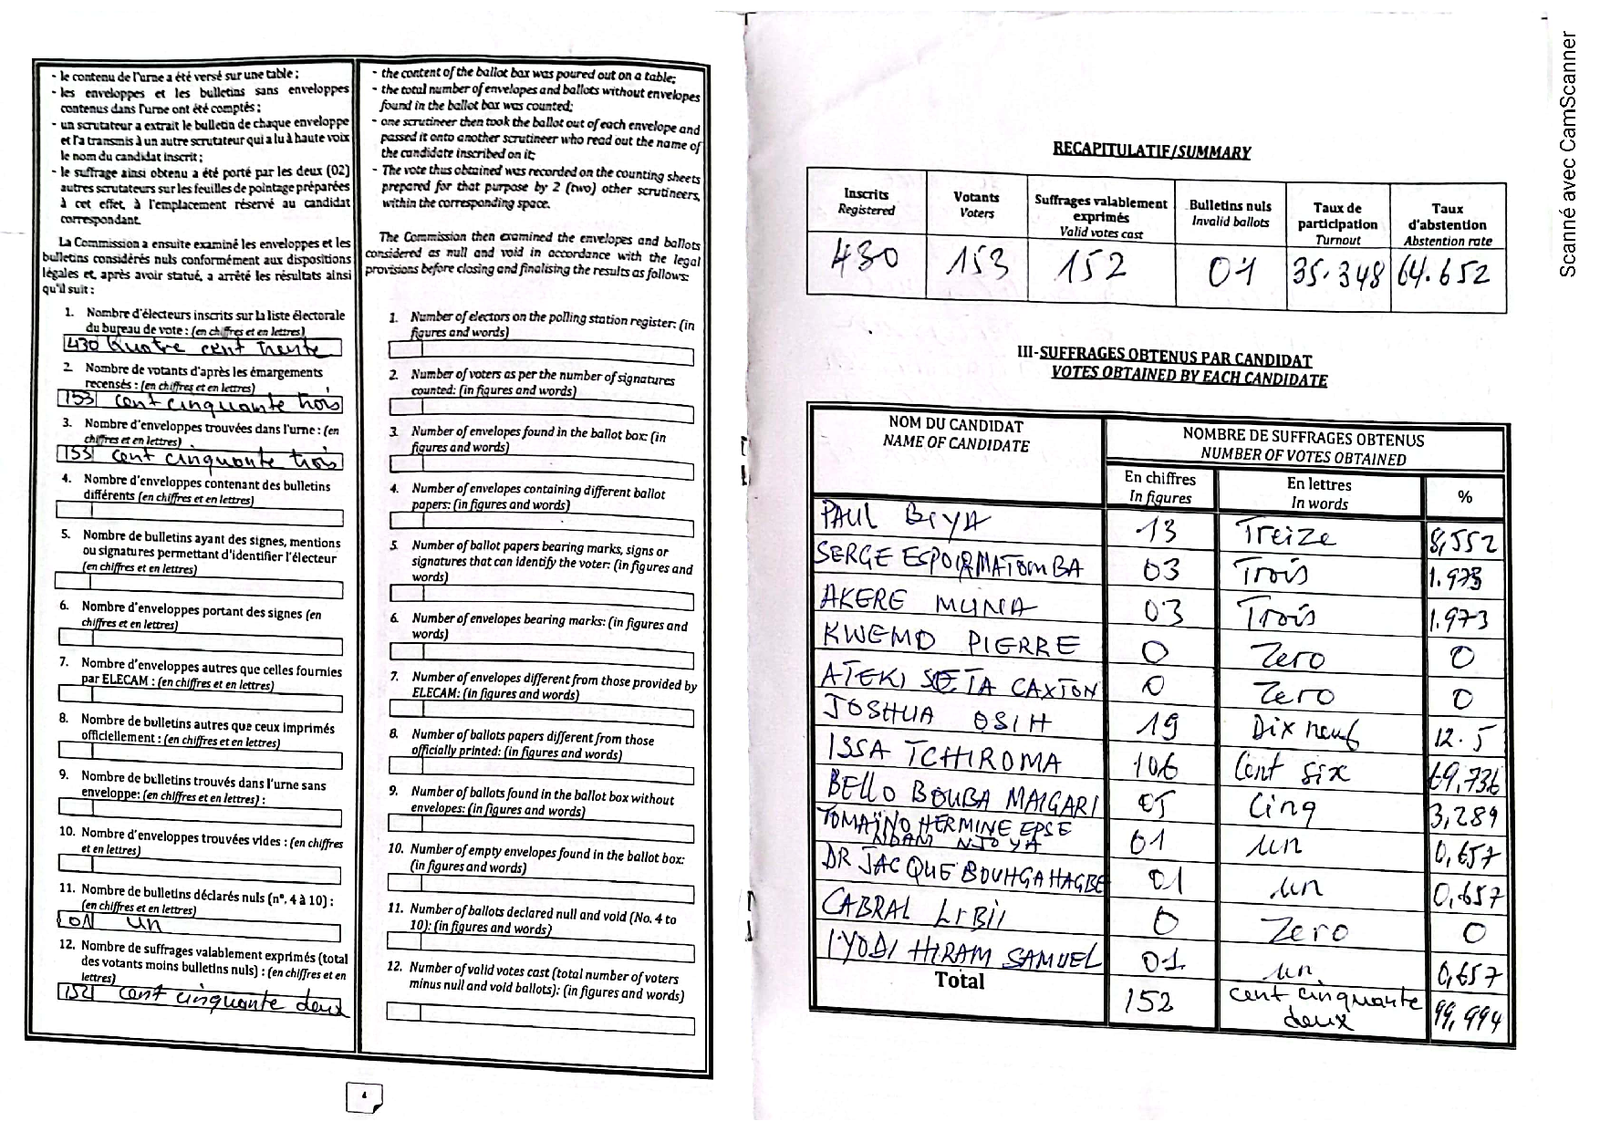 - le contenu de l'urne a été versé sur une table ;
- les enveloppes et les bulletins sans enveloppes
contenus dans l'urne ont été comptés ;
- un scrutateur a extrait le bulletin de chaque enveloppe
et l'a transmis à un autre scrutateur qui a lu à haute voix
le nom du candidat inscrit ;
- le suffrage ainsi obtenu a été porté par les deux (02)
autres scrutateurs sur les feuilles de pointage préparées
à cet effet, à l'emplacement réservé au candidat
correspondant.
La Commission a ensuite examiné les enveloppes et les
bulletins considérés nuls conformément aux dispositions
légales et, après avoir statué, a arrêté les résultats ainsi
qu'il suit :
1. Nombre d'électeurs inscrits sur la liste électorale
du bureau de vote : (en chiffres et en lettres)
430 Quatre cent trente
2. Nombre de votants d'après les émargements
recensés : (en chiffres et en lettres)
153 cent cinquante trois
3. Nombre d'enveloppes trouvées dans l'urne : (en
chiffres et en lettres)
153 cent cinquante trois
4. Nombre d'enveloppes contenant des bulletins
différents (en chiffres et en lettres)
5. Nombre de bulletins ayant des signes, mentions
ou signatures permettant d'identifier l'électeur
(en chiffres et en lettres)
6. Nombre d'enveloppes portant des signes (en
chiffres et en lettres)
7. Nombre d'enveloppes autres que celles fournies
par ELECAM : (en chiffres et en lettres)
8. Nombre de bulletins autres que ceux imprimés
officiellement : (en chiffres et en lettres)
9. Nombre de bulletins trouvés dans l'urne sans
enveloppe: (en chiffres et en lettres) :
10. Nombre d'enveloppes trouvées vides : (en chiffres
et en lettres)
11. Nombre de bulletins déclarés nuls (n°. 4 à 10) :
(en chiffres et en lettres)
01 un
12. Nombre de suffrages valablement exprimés (total
des votants moins bulletins nuls) : (en chiffres et en
lettres)
152 cent cinquante deux
- the content of the ballot box was poured out on a table;
- the total number of envelopes and ballots without envelopes
found in the ballot box was counted;
- one scrutineer then took the ballot out of each envelope and
passed it onto another scrutineer who read out the name of
the candidate inscribed on it;
- The vote thus obtained was recorded on the counting sheets
prepared for that purpose by 2 (two) other scrutineers,
within the corresponding space.
The Commission then examined the envelopes and ballots
considered as null and void in accordance with the legal
provisions before closing and finalising the results as follows:
1. Number of electors on the polling station register: (in
figures and words)
2. Number of voters as per the number of signatures
counted: (in figures and words)
3. Number of envelopes found in the ballot box: (in
figures and words)
4. Number of envelopes containing different ballot
papers: (in figures and words)
5. Number of ballot papers bearing marks, signs or
signatures that can identify the voter: (in figures and
words)
6. Number of envelopes bearing marks: (in figures and
words)
7. Number of envelopes different from those provided by
ELECAM: (in figures and words)
8. Number of ballots papers different from those
officially printed: (in figures and words)
9. Number of ballots found in the ballot box without
envelopes: (in figures and words)
10. Number of empty envelopes found in the ballot box:
(in figures and words)
11. Number of ballots declared null and void (No. 4 to
10): (in figures and words)
12. Number of valid votes cast (total number of voters
minus null and void ballots): (in figures and words)
4
RECAPITULATIF/SUMMARY
Inscrits Votants Suffrages valablement exprimés Bulletins nuls Taux de participation Taux d'abstention
Registered Voters Valid votes cast Invalid ballots Turnout Abstention rate
430 153 152 01 35.348 64.652
III-SUFFRAGES OBTENUS PAR CANDIDAT
VOTES OBTAINED BY EACH CANDIDATE
NOM DU CANDIDAT NOMBRE DE SUFFRAGES OBTENUS
NAME OF CANDIDATE NUMBER OF VOTES OBTAINED
En chiffres En lettres %
In figures In words
PAUL BIYA 13 Treize 8,552
SERGE ESPOIR MATOMBA 03 Trois 1.973
AKERE MUNA 03 Trois 1.973
KWEMO PIERRE 0 Zero 0
ATEKI SETA CAXTON 0 Zero 0
JOSHUA OSIH 19 Dix neuf 12.5
ISSA TCHIROMA 106 Cent six 69,736
BELLO BOUBA MAIGARI 05 Cinq 3,289
TOMAÏNO HERMINE EPSE
NDAM NJOYA 01 un 0,657
DR JACQUE BOUHGAHAGBE 01 un 0,657
CABRAL LIBII 0 Zero 0
IYODI HIRAM SAMUEL 01 un 0,657
Total 152 cent cinquante
deux 99,994
Scanné avec CamScanner